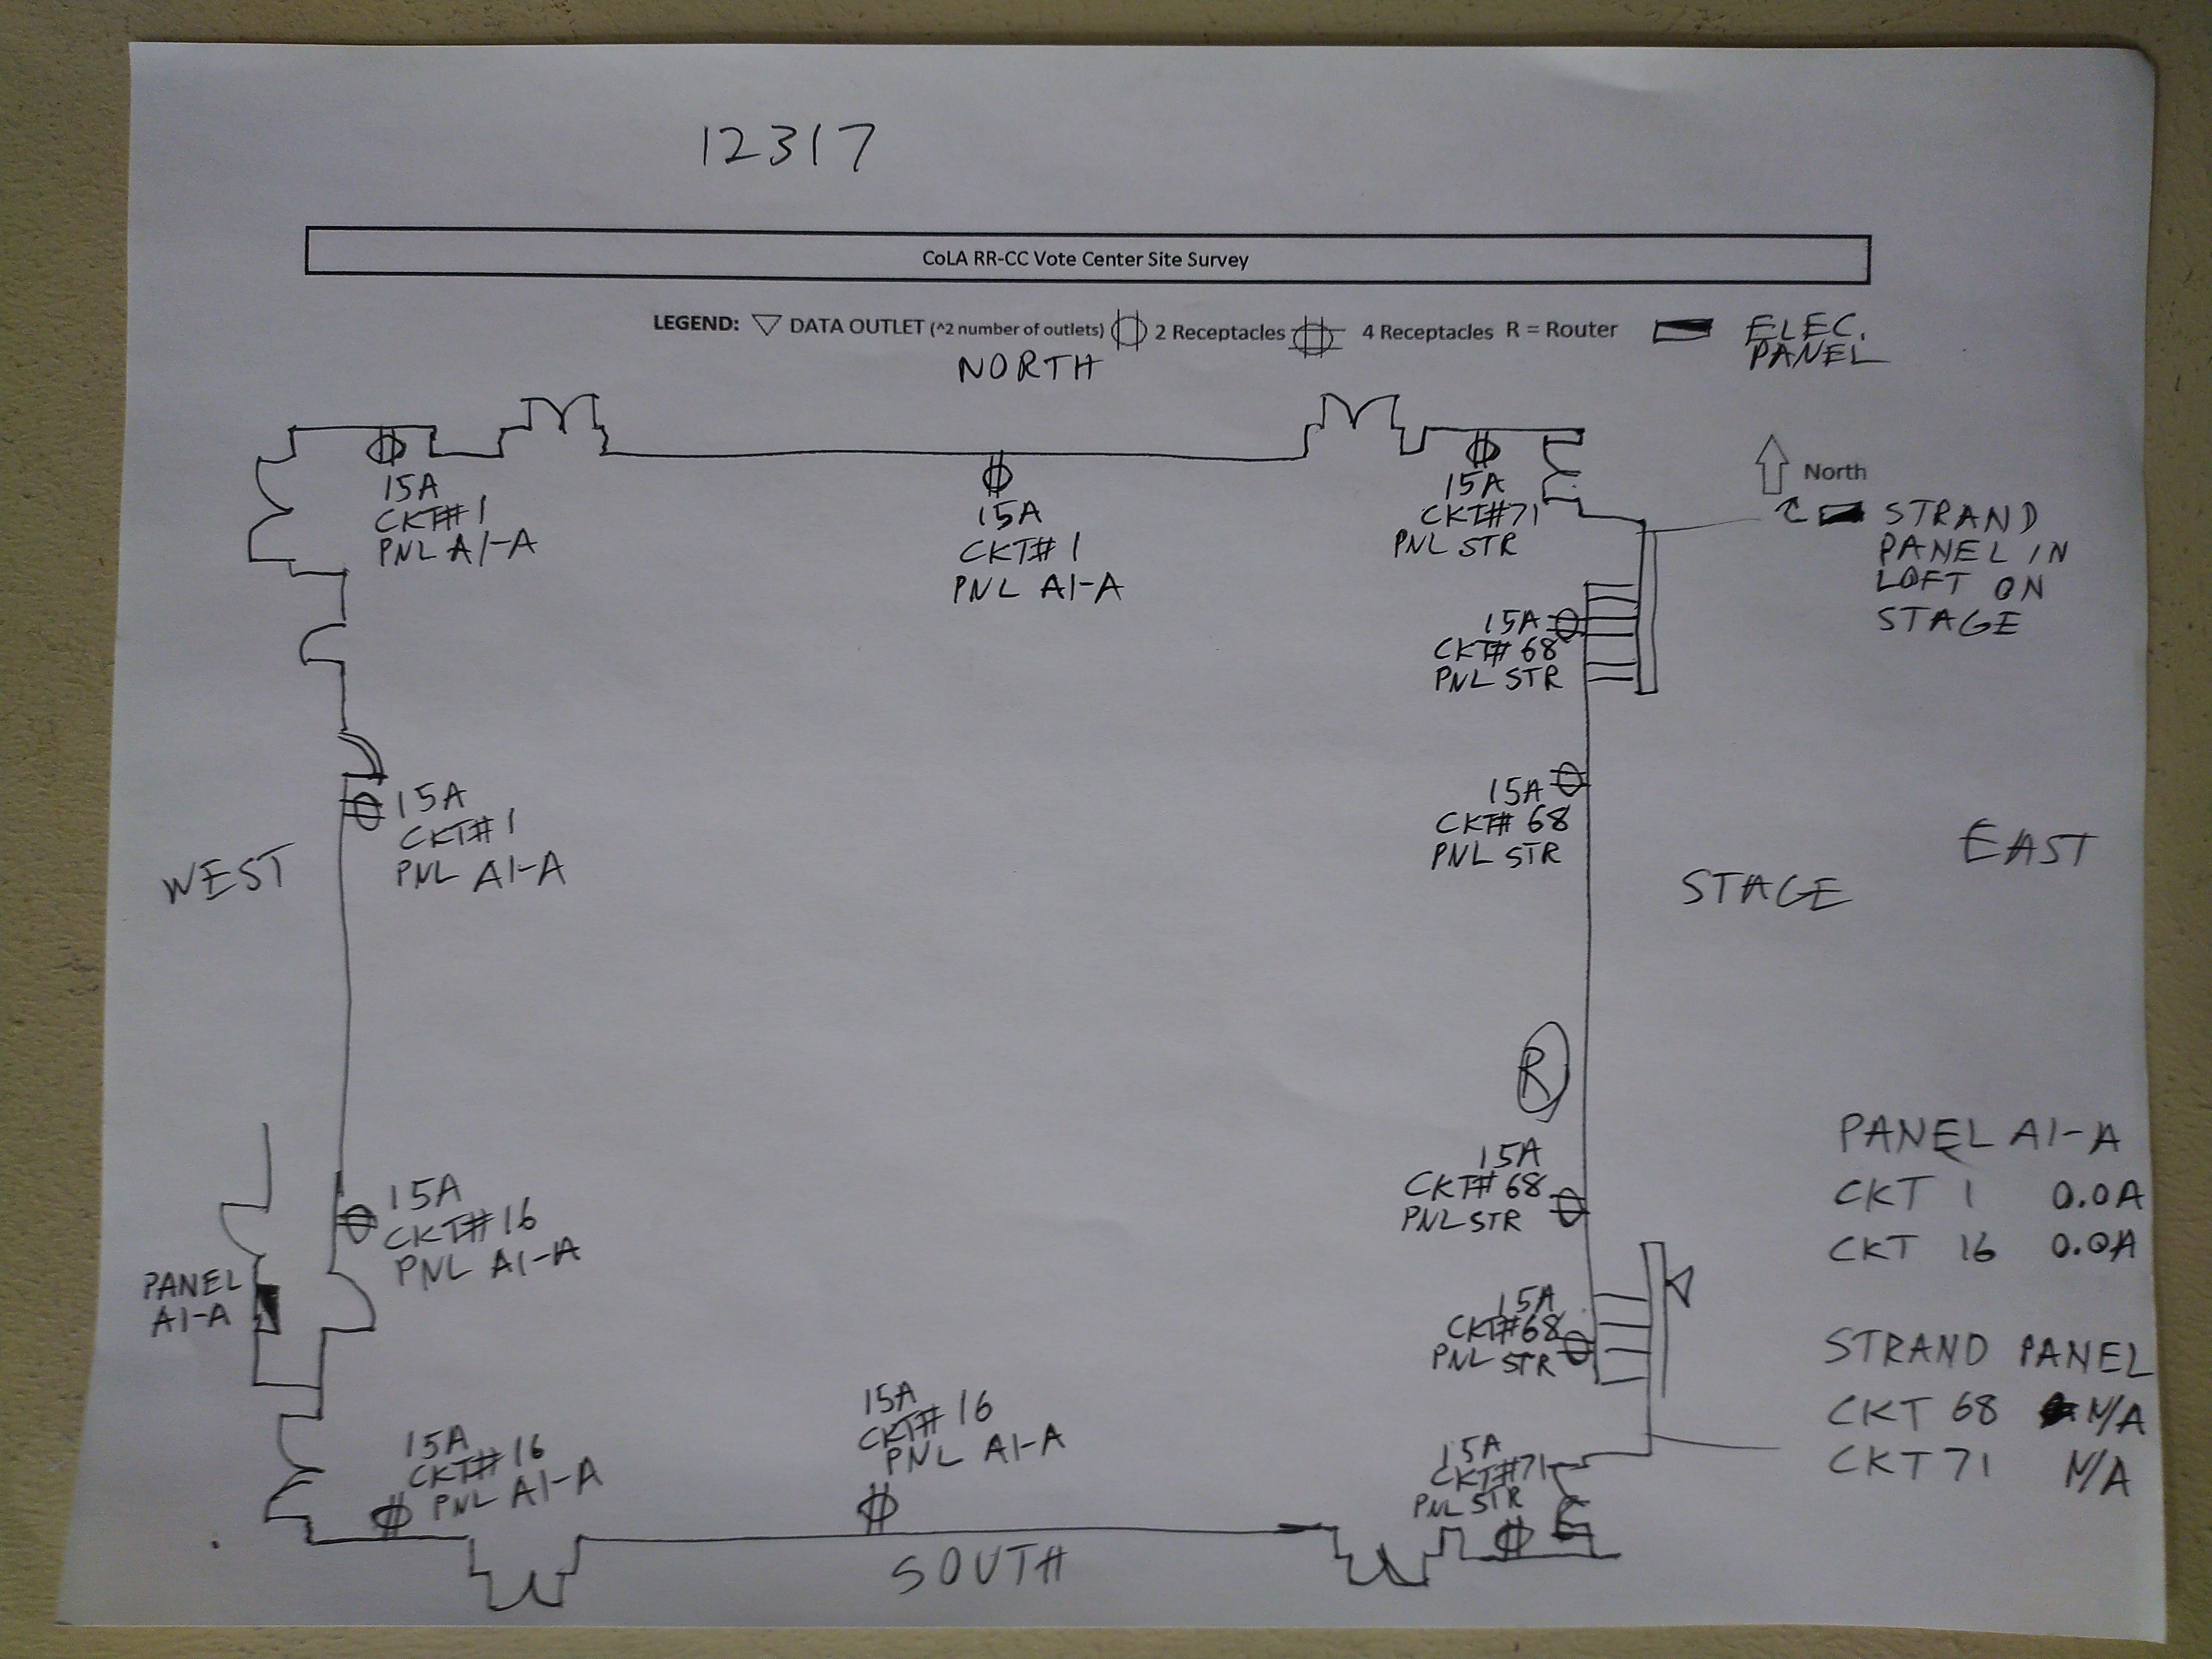 12317
CoLA RR-CC Vote Center Site Survey
LEGEND: DATA OUTLET (^2 number of outlets) 2 Receptacles 4 Receptacles R = Router ELEC.
PANEL
NORTH
North
15A
CKT# 1
PNL A1-A
15A
CKT# 1
PNL A1-A
15A
CKT#71
PNL STR
STRAND
PANEL IN
LOFT ON
STAGE
15A
CKT# 68
PNL STR
15A
CKT# 1
PNL A1-A
15A
CKT# 68
PNL STR
WEST
STAGE
EAST
R
15A
CKT# 16
PNL A1-A
15A
CKT# 68
PNL STR
PANEL A1-A
CKT 1 0.0A
CKT 16 0.0A
PANEL
A1-A
15A
CKT#68
PNL STR
STRAND PANEL
CKT 68 N/A
CKT 71 N/A
15A
CKT# 16
PNL A1-A
15A
CKT# 16
PNL A1-A
15A
CKT#71
PNL STR
SOUTH